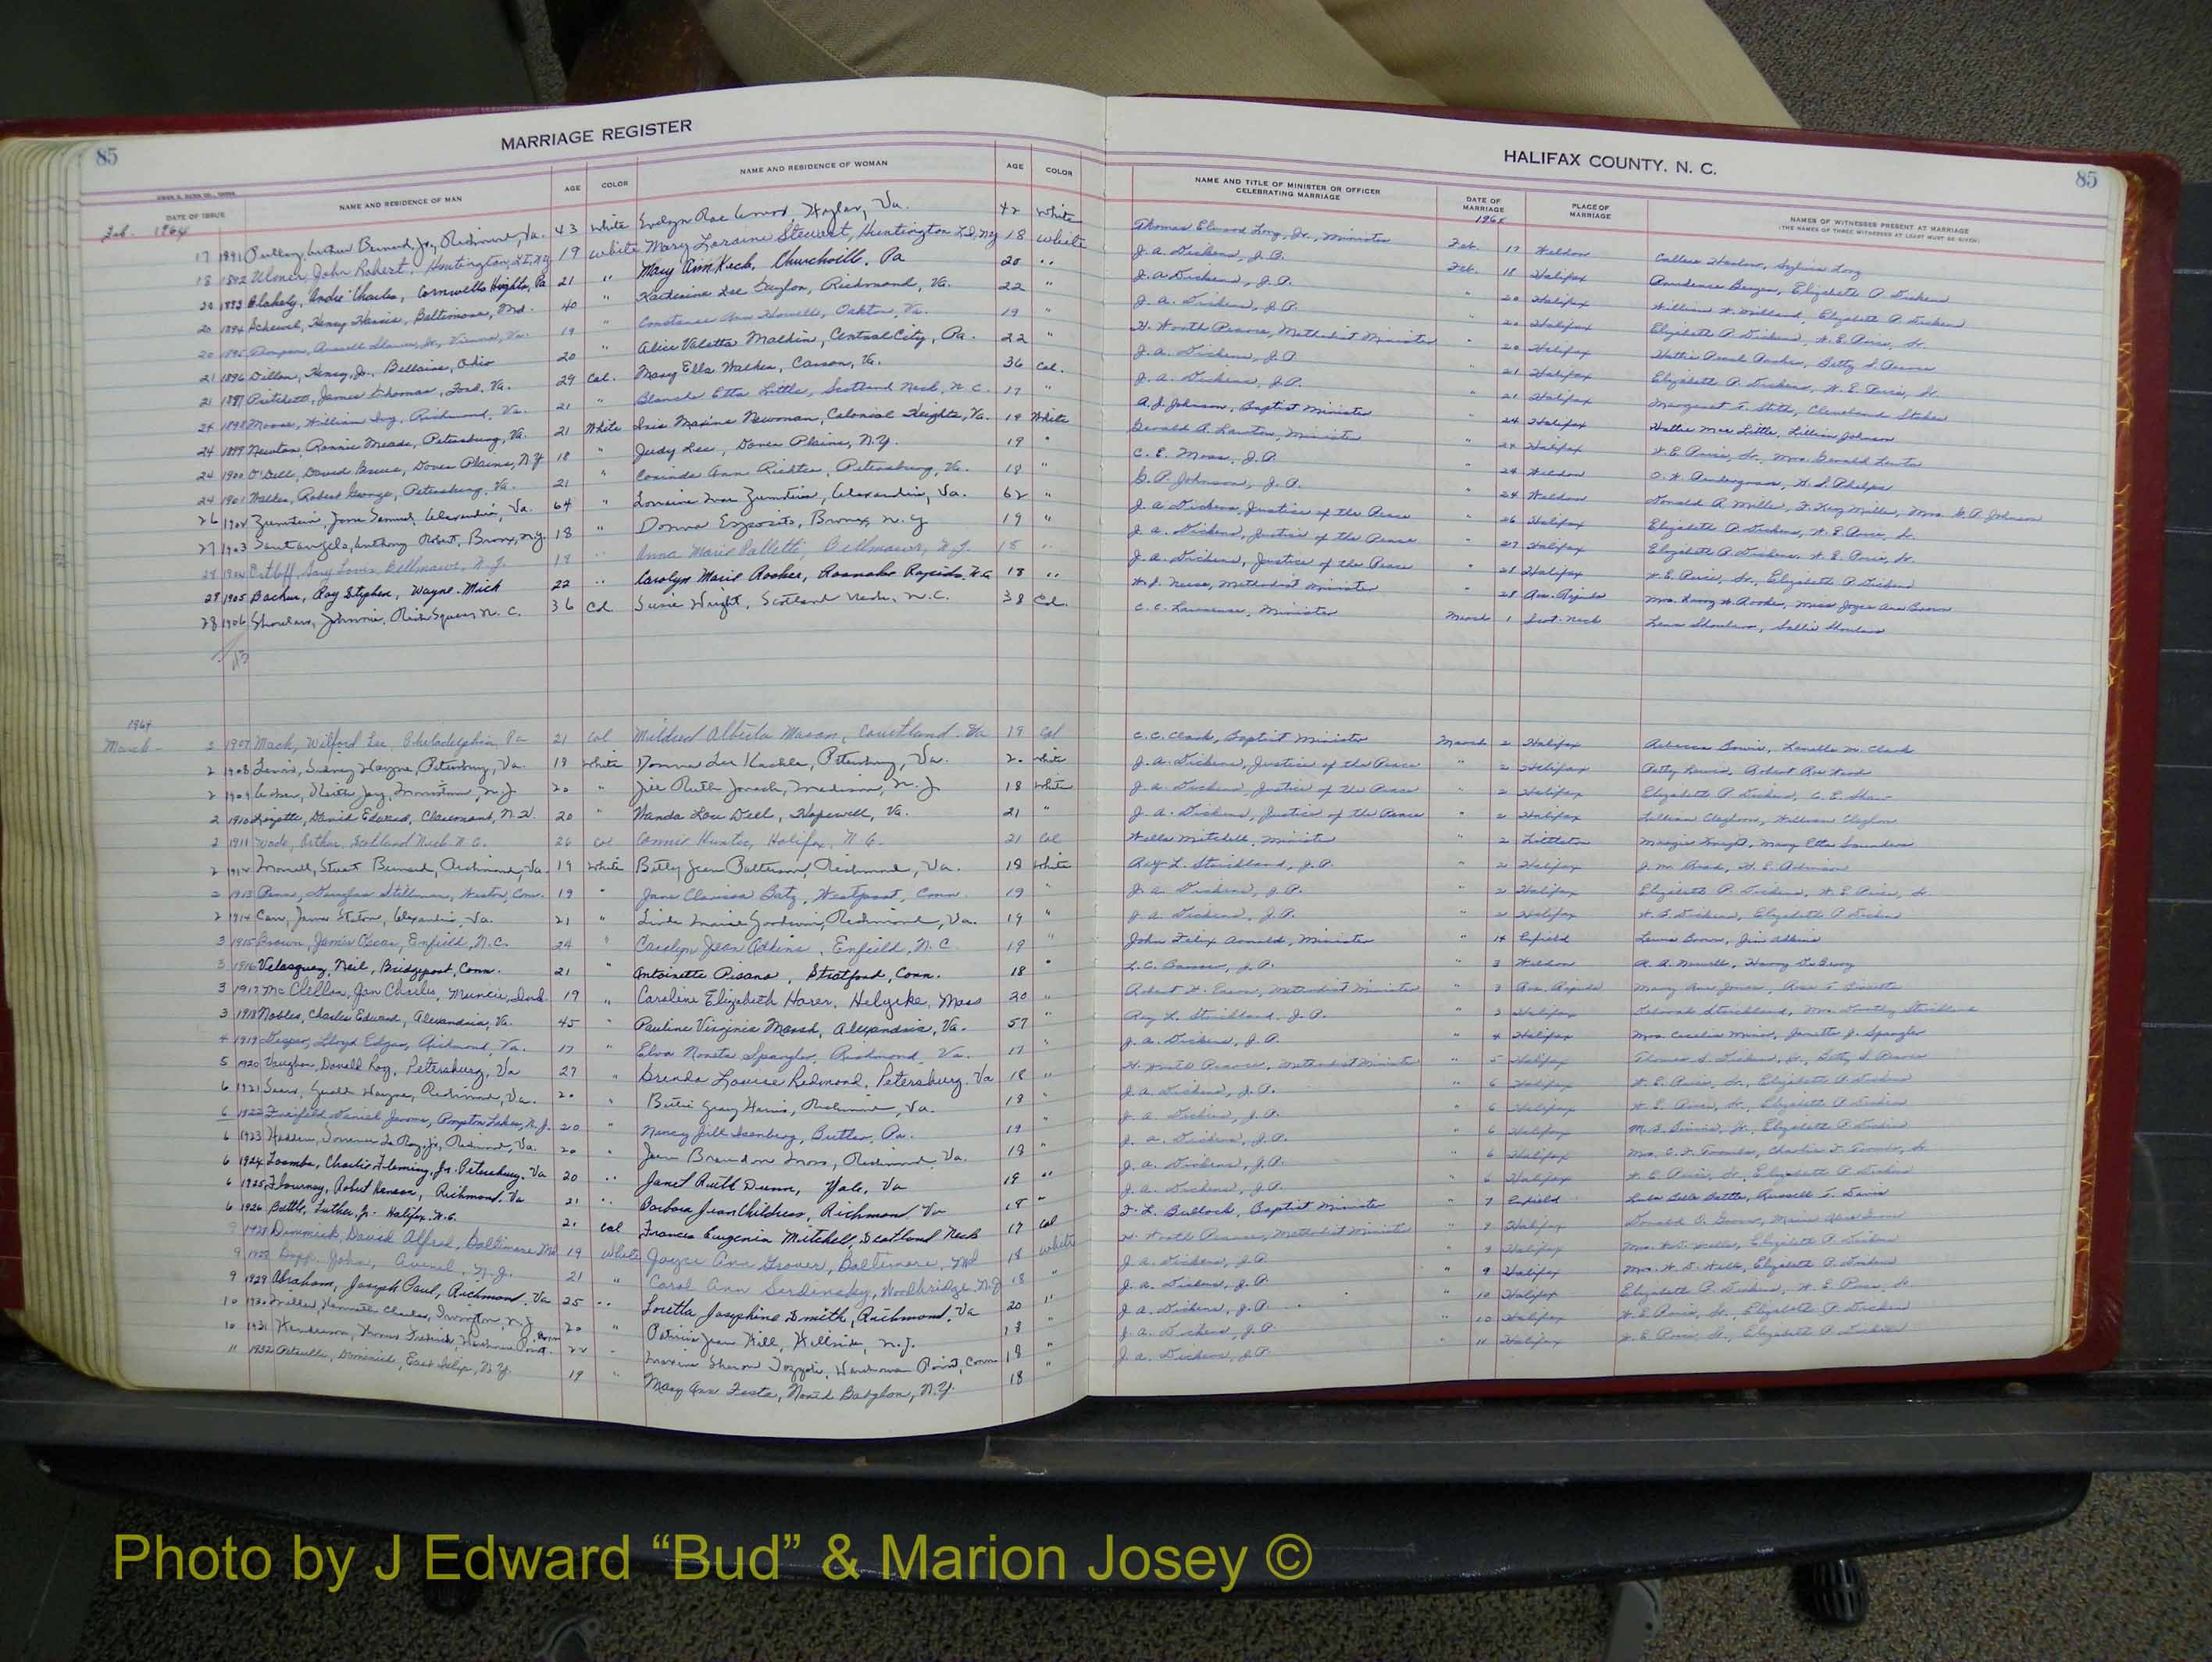 85
MARRIAGE REGISTER
DATE OF ISSUE
NAME AND RESIDENCE OF MAN
AGE
COLOR
NAME AND RESIDENCE OF WOMAN
AGE
COLOR
Feb. 1964
17 1891 Bernard, Jr., Richmond, Va. 43 White Evelyn Rae Va. 42 White
18 1892 John Robert, Huntington, L.I., N.Y. 19 White Mary Loraine Stewart, Huntington L.I., N.Y. 18 White
20 1893 Blakely, Andre Charles, Cornwells Heights, Pa 21 " Mary Ann Keck, Churchville, Pa 20 "
20 1894 Henry Harris, Baltimore, Md. 40 " Katherine Lee Richmond, Va. 22 "
20 1895 Thompson, Russell Jr., Vienna, Va. 19 " Constance Ann Howell, Oakton, Va. 19 "
21 1896 Dillon, Henry, Jr., Bellaire, Ohio 20 " Alice Valetta Malkin, Central City, Pa. 22 "
21 1897 Pritchett, James Thomas, Ford, Va. 29 Col. Mary Ella Walker, Carson, Va. 36 Col.
24 1898 Moose, William Richmond, Va. 21 " Blanche Etta Little, Scotland Neck, N.C. 17 "
24 1899 Newton, Ronnie Meade, Petersburg, Va. 21 White Iris Maxine Newman, Colonial Heights, Va. 19 White
24 1900 O'Dell, David Bruce, Dover Plains, N.Y 18 " Judy Lee, Dover Plains, N.Y. 19 "
24 1901 Walker, Robert George, Petersburg, Va. 21 " Ann Richter, Petersburg, Va. 18 "
26 1902 Zumstein, Samuel, Alexandria, Va. 64 " Lorraine Mae Zumstein, Alexandria, Va. 62 "
27 1903 Santangelo, Anthony Robert, Bronx, N.Y. 18 " Donna Esposito, Bronx, N.Y 19 "
28 1904 Ortloff, Gary Louis, Bellmawr, N.J. 19 " Anna Marie Palletti, Bellmawr, N.J. 18 "
28 1905 Bacher, Ray Stephen, Wayne, Mich 22 " Carolyn Marie Rooker, Roanoke Rapids, N.C. 18 "
28 1906 Shoulars, Johnnie, Rich Square, N.C. 36 Col. Susie Wright, Scotland Neck, N.C. 38 Col.
1964
March 2 1907 Mack, Wilford Lee, Philadelphia, Pa 21 Col Mildred Alberta Mason, Courtland, Va 19 Col
2 1908 Lewis, Sidney Wayne, Petersburg, Va. 18 White Donna Lee Petersburg, Va. 20 White
2 1909 Keith Jay, Morristown, N.J. 20 " Jill Ruth Madison, N.J. 18 White
2 1910 David Edward, Claremont, N.H. 20 " Wanda Lou Dell, Hopewell, Va. 21 "
2 1911 Wade, Arthur, Scotland Neck, N.C. 26 Col Connie Hunter, Halifax, N.C. 21 Col
2 1912 Stuart Bernard, Richmond, Va. 19 White Betty Jean Patterson, Richmond, Va. 18 White
2 1913 Penn, Douglas Stillman, Weston, Conn. 19 " Jane Clarissa Batz, Westport, Conn. 19 "
2 1914 Carr, James Alexandria, Va. 21 " Linda Marie Goodwin, Richmond, Va. 19 "
3 1915 Brown, James Oscar, Enfield, N.C. 24 " Carolyn Jean Adkins, Enfield, N.C. 19 "
3 1916 Velasquez, Neil, Bridgeport, Conn. 21 " Antoinette Pisano, Stratford, Conn. 18 "
3 1917 McClellan, Jan Charles, Muncie, Ind. 19 " Caroline Elizabeth Mass 20 "
3 1918 Nobles, Charles Edward, Alexandria, Va. 45 " Pauline Virginia Marsh, Alexandria, Va. 57 "
4 1919 Lloyd Edgar, Richmond, Va. 17 " Elva Spangler, Richmond, Va. 17 "
5 1920 Vaughan, Donald Roy, Petersburg, Va 27 " Brenda Louise Redmond, Petersburg, Va 18 "
6 1921 Wayne, Richmond, Va. 20 " Gray Harris, Richmond, Va. 18 "
6 1922 Daniel Jerome, Pompton Lakes, N.J. 20 " Nancy Jill Isenberg, Butler, Pa. 19 "
6 1923 Jr., Richmond, Va. 20 " Jean Brandon Moss, Richmond, Va. 18 "
6 1924 Toombs, Charlie Fleming, Jr. Petersburg, Va 20 " Janet Ruth Dunn, Yale, Va 19 "
6 1925 Flournoy, Robert Henson, Richmond, Va 21 " Barbara Jean Childress, Richmond Va 18 "
6 1926 Battle, Luther, Jr. Halifax, N.C. 21 Col Frances Eugenia Mitchell, Scotland Neck 17 Col
9 1927 Dimmick, David Alfred, Baltimore Md 19 White Joyce Ann Grover, Baltimore, Md 18 White
9 1928 Bopp, John, Avenel, N.J. 21 " Carol Ann Serdinsky, Woodbridge, N.J 18 "
9 1929 Abraham, Joseph Paul, Richmond, Va 25 " Loretta Josephine Smith, Richmond, Va 20 "
10 1930 Miller, Kenneth Charles, Irvington, N.J. 20 " Patricia Jean Hill, Hillside, N.J. 18 "
10 1931 Henderson, Thomas 22 " Maxine Sharon Point, Conn 18 "
11 1932 Petrulli, Dominick, East Islip, N.Y. 19 " Mary Ann Festa, North Babylon, N.Y. 18
HALIFAX COUNTY, N. C.
85
NAME AND TITLE OF MINISTER OR OFFICER
CELEBRATING MARRIAGE
DATE OF
MARRIAGE
PLACE OF
MARRIAGE
NAMES OF WITNESSES PRESENT AT MARRIAGE
(THE NAMES OF THREE WITNESSES AT LEAST MUST BE GIVEN)
Thomas Elwood Long, Jr., Minister Feb. 17 Weldon Callie Harlow, Sylvia Long
J. A. Dickens, J.P. Feb. 18 Halifax Prudence Elizabeth P. Dickens
J. A. Dickens, J.P. " 20 Halifax William H. Milland, Elizabeth P. Dickens
J. A. Dickens, J.P. " 20 Halifax Elizabeth P. Dickens, W. E. Jr.
H. Worth Pearce, Methodist Minister " 20 Halifax Hattie Pearl Betty S. Pearce
J. A. Dickens, J.P. " 21 Halifax Elizabeth P. Dickens, W. E. Jr.
J. A. Dickens, J.P. " 21 Halifax Margaret T. Stith, Cleveland Stokes
A. J. Johnson, Baptist Minister " 24 Halifax Hallie Mae Little, Lillian Johnson
Gerald A. Lawton, Minister " 24 Halifax W. E. Jr., Mrs. Gerald Lawton
C. E. Moss, J.P. " 24 Weldon O. W. Pendergrass, H. S. Phelps
G. P. Johnson, J.P. " 24 Weldon Donald R. Miller, F. King Miller, Mrs. G. P. Johnson
J. A. Dickens, Justice of the Peace " 26 Halifax Elizabeth P. Dickens, W. E. Jr.
J. A. Dickens, Justice of the Peace " 27 Halifax Elizabeth P. Dickens, W. E. Jr.
J. A. Dickens, Justice of the Peace " 28 Halifax W. E. Jr., Elizabeth P. Dickens
W. J. Neese, Methodist Minister " 28 Roa. Rapids Mrs. Harry W. Rooker, Miss Joyce Ann Brown
C. C. Lawrence, Minister March 1 Scot. Neck Lena Shoulars, Sallie Shoulars
C. C. Clark, Baptist Minister March 2 Halifax Rebecca Lenella M. Clark
J. A. Dickens, Justice of the Peace " 2 Halifax Patty Lewis, Robert
J. A. Dickens, Justice of the Peace " 2 Halifax Elizabeth P. Dickens, C. E. Shaw
J. A. Dickens, Justice of the Peace " 2 Halifax Lillian Claghorn, William Claghorn
Willie Mitchell, Minister " 2 Littleton Mary Etta Saunders
Ray L. Strickland, J.P. " 2 Halifax J. M. W. E. Adkinson
J. A. Dickens, J.P. " 2 Halifax Elizabeth P. Dickens, W. E. Jr.
J. A. Dickens, J.P. " 2 Halifax W. B. Dickens, Elizabeth P. Dickens
John Felix Arnold, Minister " 14 Enfield Lewis Brown, Jim Adkins
L. C. J.P. " 3 Weldon R. A. Newell, Harry DeBerry
Robert H. Methodist Minister " 3 Roa. Rapids Mary Ann Jones, Rose T.
Ray L. Strickland, J.P. " 3 Halifax Deborah Strickland, Mrs. Dorothy Strickland
J. A. Dickens, J.P. " 4 Halifax Mrs. Cecelia Minor, Janette J. Spangler
H. Worth Pearce, Methodist Minister " 5 Halifax Thomas S. Dickens, Jr., Betty S. Pearce
J. A. Dickens, J.P. " 6 Halifax W. E. Jr., Elizabeth P. Dickens
J. A. Dickens, J.P. " 6 Halifax W. E. Jr., Elizabeth P. Dickens
J. A. Dickens, J.P. " 6 Halifax M. S. Jr., Elizabeth P. Dickens
J. A. Dickens, J.P. " 6 Halifax Mrs. C. F. Toombs, Charlie F. Toombs, Sr
J. A. Dickens, J.P. " 6 Halifax W. E. Jr., Elizabeth P. Dickens
F. L. Bullock, Baptist Minister " 7 Enfield Lula Bell Battle, Russell T. Davis
H. Worth Pearce, Methodist Minister " 9 Halifax Donald O.
J. A. Dickens, J.P. " 9 Halifax Mrs. Elizabeth P. Dickens
J. A. Dickens, J.P. " 9 Halifax Mrs. Elizabeth P. Dickens
J. A. Dickens, J.P. " 10 Halifax Elizabeth P. Dickens, W. E.
J. A. Dickens, J.P. " 10 Halifax W. E. Jr., Elizabeth P. Dickens
J. A. Dickens, J.P. " 11 Halifax W. E. Jr., Elizabeth P. Dickens
Photo by J Edward “Bud” & Marion Josey ©